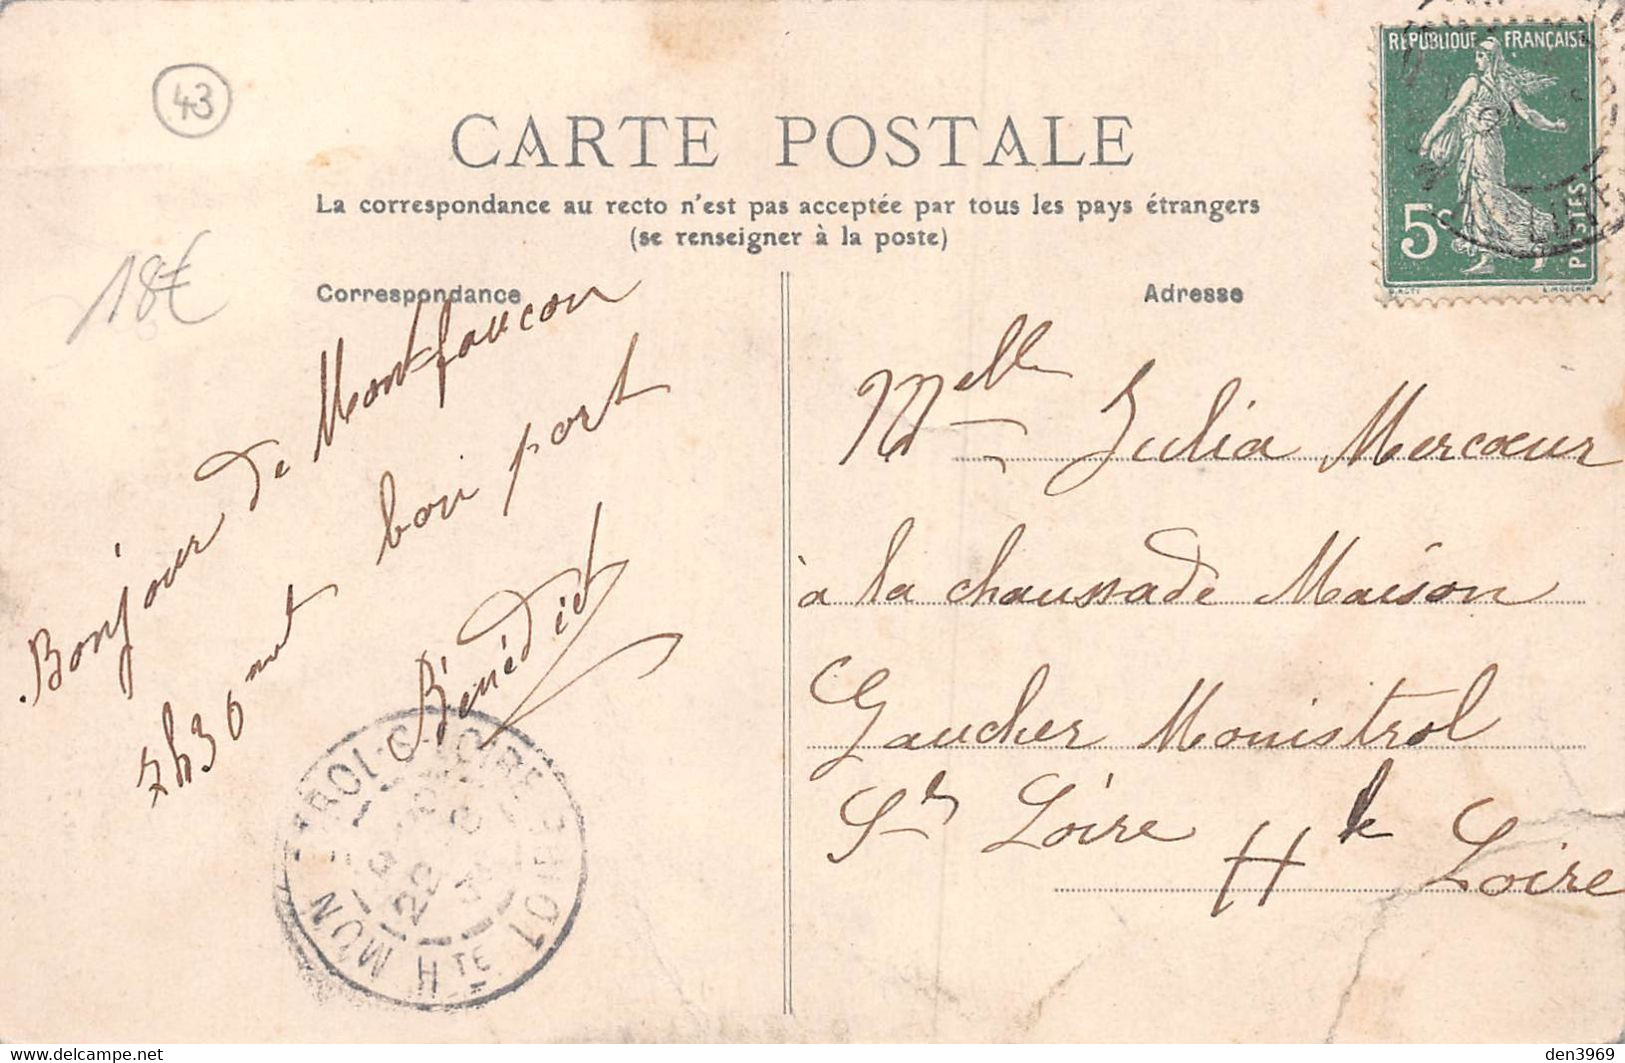 43
CARTE POSTALE
La correspondance au recto n'est pas acceptée par tous les pays étrangers
(se renseigner à la poste)
RÉPUBLIQUE FRANÇAISE
5c
POSTES
18€
Correspondance
Bonjour de Montfaucon
7h30 bon port
Bénédict
Adresse
Melle Julia Mercœur
à la chaussade Maison
Gaucher Monistrol
Sr Loire Hte Loire
MONISTROL-S-LOIRE
Hte LOIRE
22
den3969